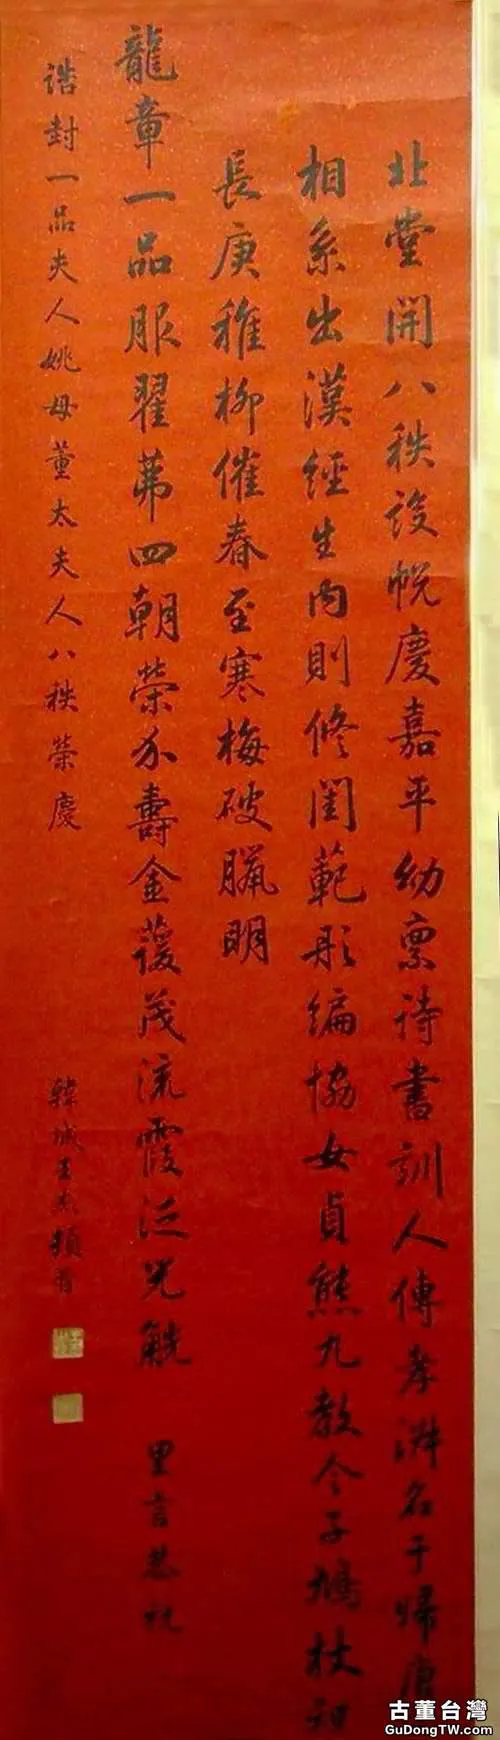 北堂開八秩設帨慶嘉平幼稟詩書訓人傳孝淑名于歸唐
相系出漢經生內則修閨範彤編協女貞熊丸教令子鳩杖祝
長庚稚柳催春至寒梅破臘明
龍章一品服翟茀四朝榮介壽金萲茂流霞泛兕觥 里言恭祝
誥封一品夫人姚母董太夫人八秩榮慶
韓城王杰頓首
古董台灣
GuDongTW.com